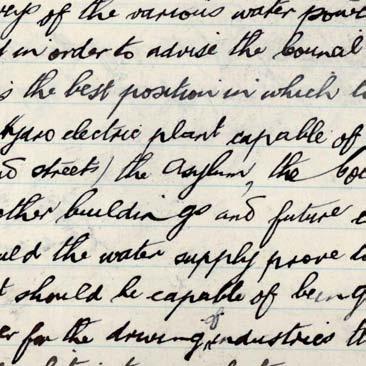 of the various water power
in order to advise the Counal
is the best position in which to
Hydro electric plant capable of
and streets) the Asylum, the
other buildings and future
the water supply prove to
should be capable of being
for the driving of industries